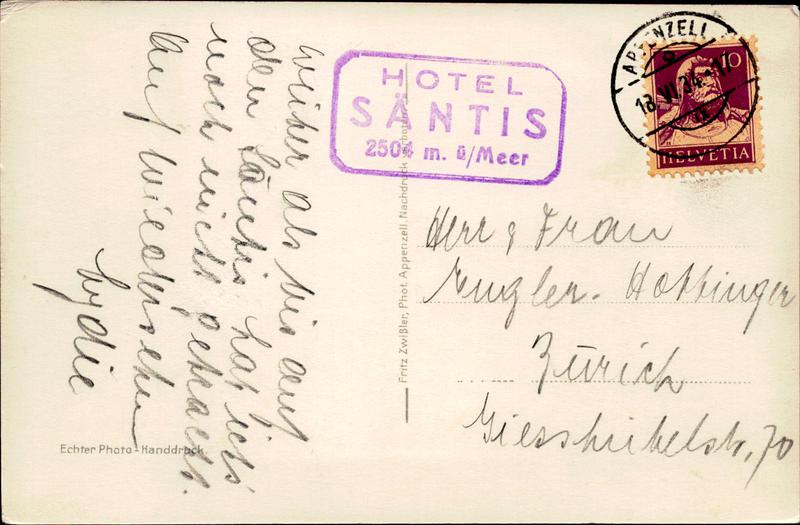 weiter als bis auf
den Säntis hat ichs
noch nicht gebracht.
Auf Wiedersehn
Lydie
HOTEL
SÄNTIS
2504 m. ü/Meer
APPENZELL
18.VI.34-17
10
HELVETIA
Herr & Frau
Engler-Hottinger
Zürich
Giesshübelstr. 70
Fritz Zwißler, Phot. Appenzell, Nachdruck verboten
Echter Photo-Handdruck.